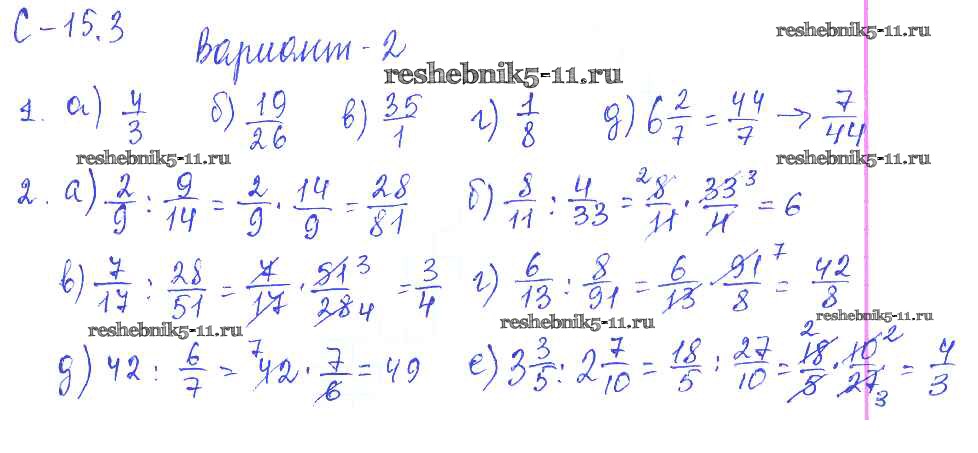 С-15.3 reshebnik5-11.ru
Вариант-2
reshebnik5-11.ru
1. а) 4/3 б) 19/26 в) 35/1 г) 1/8 д) 6 2/7 = 44/7 → 7/44
reshebnik5-11.ru reshebnik5-11.ru
2. а) 2/9 : 9/14 = 2/9 · 14/9 = 28/81 б) 8/11 : 4/33 = ²8/11 · 33³/4 = 6
в) 7/17 : 28/51 = 7/17 · 51³/28₄ = 3/4 г) 6/13 : 8/91 = 6/13 · 91⁷/8 = 42/8
reshebnik5-11.ru reshebnik5-11.ru reshebnik5-11.ru
д) 42 : 6/7 = ⁷42 · 7/6 = 49 е) 3 3/5 : 2 7/10 = 18/5 : 27/10 = ²18/5 · 10²/27₃ = 4/3